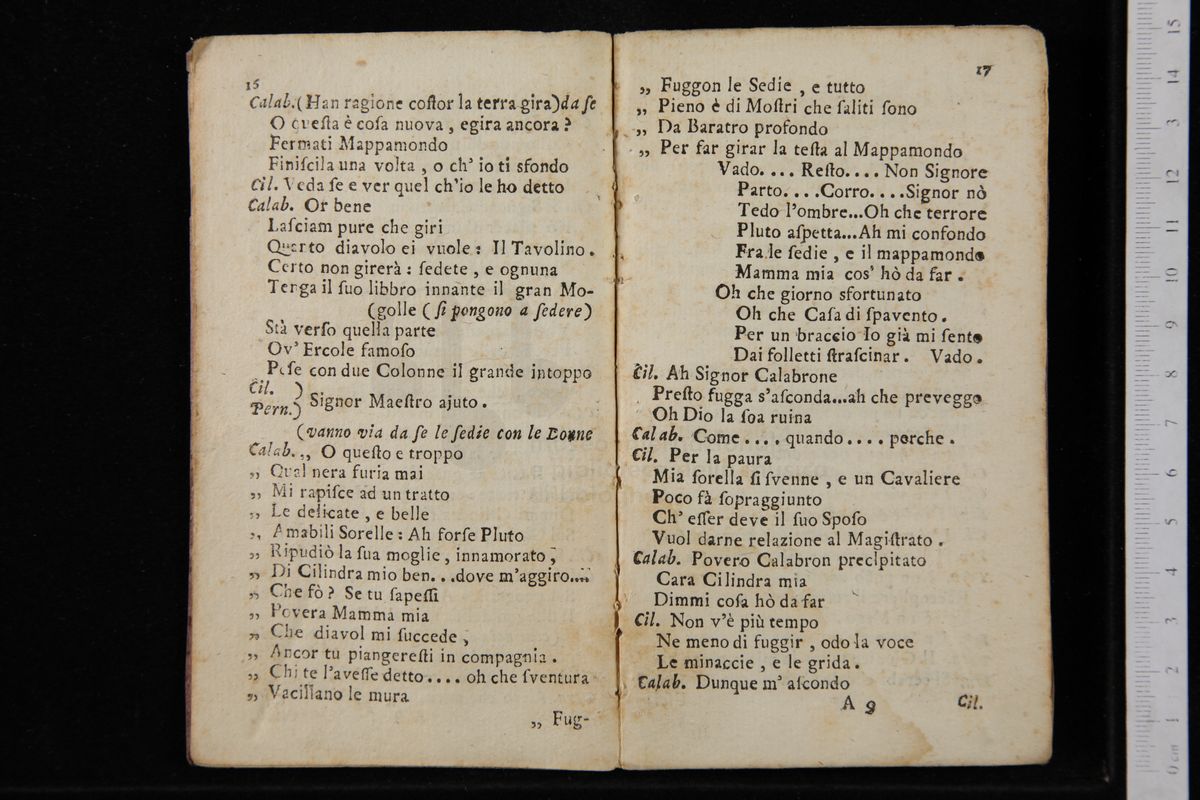 16
Calab.(Han ragione coſtor la terra gira)da ſe
O queſta è coſa nuova , egira ancora ?
Fermati Mappamondo
Finiſcila una volta , o ch' io ti sfondo
Cil. Veda ſe e ver quel ch'io le ho detto
Calab. Or bene
Laſciam pure che giri
Quarto diavolo ei vuole : Il Tavolino .
Certo non girerà : ſedete , e ognuna
Terga il ſuo libbro innante il gran Mo-
(golle ( ſi pongono a ſedere)
Stà verſo quella parte
Ov' Ercole famoſo
Poſe con due Colonne il grande intoppo
Cil. )
Pern.) Signor Maeſtro ajuto .
(vanno via da ſe le ſedie con le Donne
Calab. ,, O queſto e troppo
,, Qual nera furia mai
,, Mi rapiſce ad un tratto
,, Le delicate , e belle
,, Amabili Sorelle : Ah forſe Pluto
,, Ripudiò la ſua moglie , innamorato ,
,, Di Cilindra mio ben...dove m'aggiro....
,, Che fò ? Se tu ſapeſſi
,, Povera Mamma mia
,, Che diavol mi ſuccede ,
,, Ancor tu piangereſti in compagnia .
,, Chi te l'aveſſe detto .... oh che ſventura
,, Vacillano le mura
,, Fug-
17
,, Fuggon le Sedie , e tutto
,, Pieno è di Moſtri che ſaliti ſono
,, Da Baratro profondo
,, Per far girar la teſta al Mappamondo
Vado.... Reſto.... Non Signore
Parto....Corro....Signor nò
Tedo l'ombre...Oh che terrore
Pluto aſpetta...Ah mi confondo
Fra le ſedie , e il mappamondo
Mamma mia cos' hò da far .
Oh che giorno sfortunato
Oh che Caſa di ſpavento .
Per un braccio Io già mi ſento
Dai folletti ſtraſcinar . Vado .
Cil. Ah Signor Calabrone
Preſto fugga s'aſconda...ah che preveggo
Oh Dio la ſoa ruina
Calab. Come .... quando .... perche .
Cil. Per la paura
Mia ſorella ſi ſvenne , e un Cavaliere
Poco fà ſopraggiunto
Ch' eſſer deve il ſuo Spoſo
Vuol darne relazione al Magiſtrato .
Calab. Povero Calabron precipitato
Cara Cilindra mia
Dimmi coſa hò da far
Cil. Non v'è più tempo
Ne meno di fuggir , odo la voce
Le minaccie , e le grida .
Calab. Dunque m' aſcondo
A 9
Cil.
0 cm 1 2 3 4 5 6 7 8 9 10 11 12 13 14 15